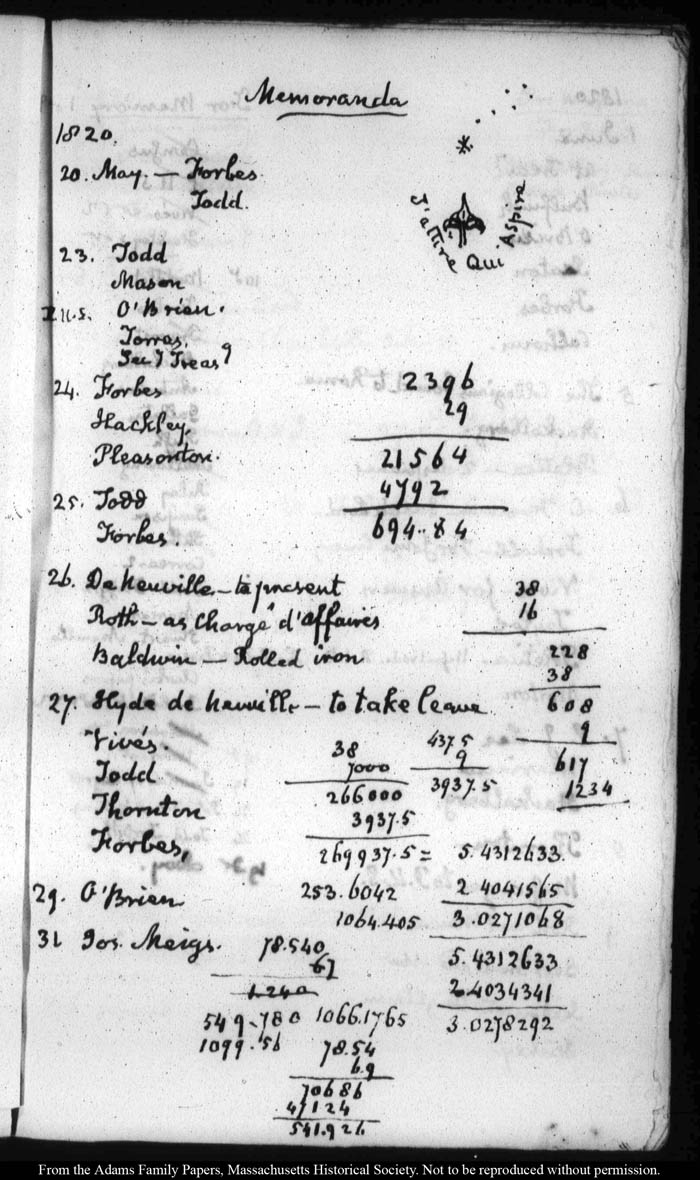 Memoranda
1820.
20. May. — Forbes
Todd.
J'attire Qui Aspire
23. Todd
Mason
O'Brien.
Torres.
24. Forbes
Hackley.
Pleasonton.
25. Todd
Forbes.
2396
29
21564
4792
694.84
26. De Neuville — to present
Roth — as Chargé d'affaires
Baldwin — Rolled iron
27. Hyde de Neuville — to take leave
Vivés.
Todd
Thornton
Forbes,
29. O'Brien
31 Jos. Meigs.
38
16
228
38
608
9
617
1234
38
7000
266000
3937.5
269937.5 = 5.4312633
437.5
9
3937.5
253.6042 2.4041565
1064.405 3.0271068
5.4312633
2.4034341
3.0278292
78.540
67
1.240
549.780 1066.1765
1099.56
78.54
6.9
70686
47124
541.926
From the Adams Family Papers, Massachusetts Historical Society. Not to be reproduced without permission.